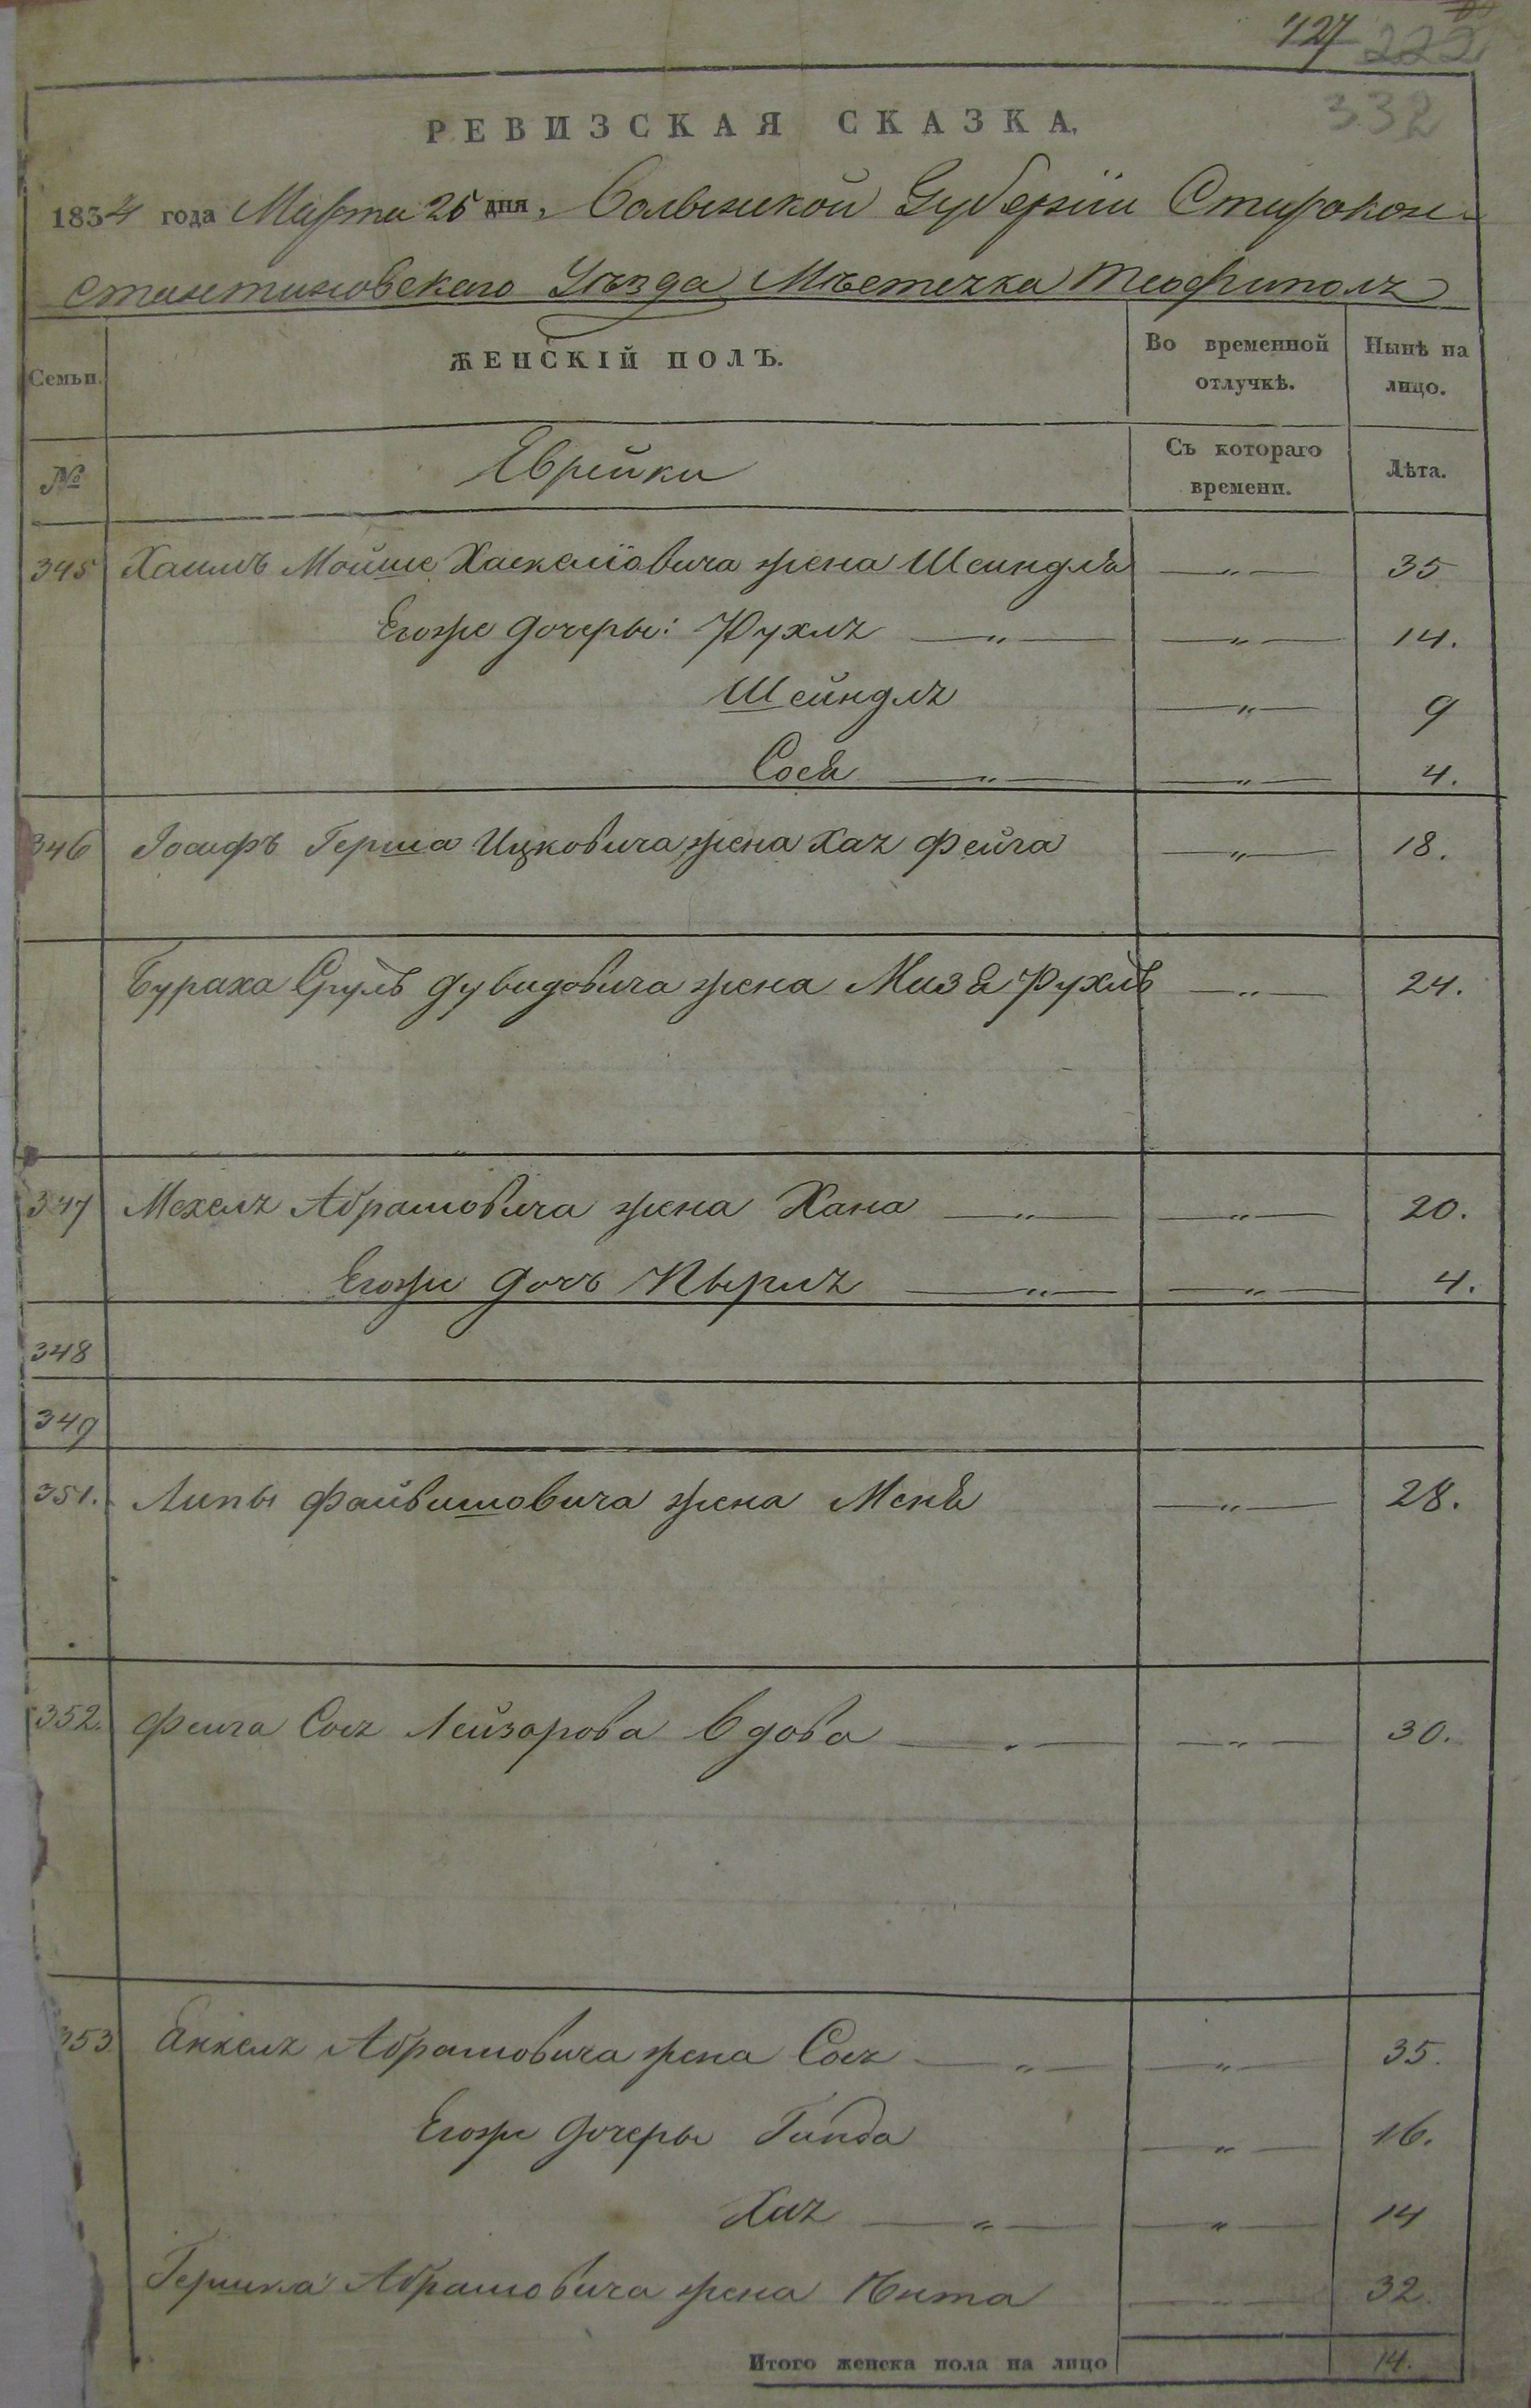 127 222
332
РЕВИЗСКАЯ СКАЗКА,
1834 года Марта 25 дня, Волынской Губерніи Старокон-
стантиновскаго Уѣзда Мѣстечка Теофиполъ
Семьи. ЖЕНСКІЙ ПОЛЪ. Во временной отлучкѣ. Нынѣ на лицо.
№ Еврейки Съ котораго времени. Лѣта.
345 Хаимъ Мойше Хаскелiовича жена Шеиндля —„— 35
Егоже дочеры: Рухлъ —„— —„— 14.
Шейндлъ —„— 9
Сося —„— —„— 4.
346 Іосифъ Герша Ицковича жена Хаъ Фейга —„— 18.
Бураха Сруль Дувидовича жена Мизя Рухль —„— 24.
347 Мехелъ Абрамовича жена Хана —„— —„— 20.
Егоже дочь Пырлъ —„— —„— 4.
348
349
351. Липы Файвишовича жена Меня —„— 28.
352. Феига Сосъ Лейзорова вдова —„— —„— 30.
353 Янкелъ Абрамовича жена Сосъ —„— —„— 35.
Егоже дочеры Гинда —„— 16.
Хаъ —„— —„— 14
Гершка Абрамовича жена Нита —„— 32.
Итого женска пола на лицо 14.